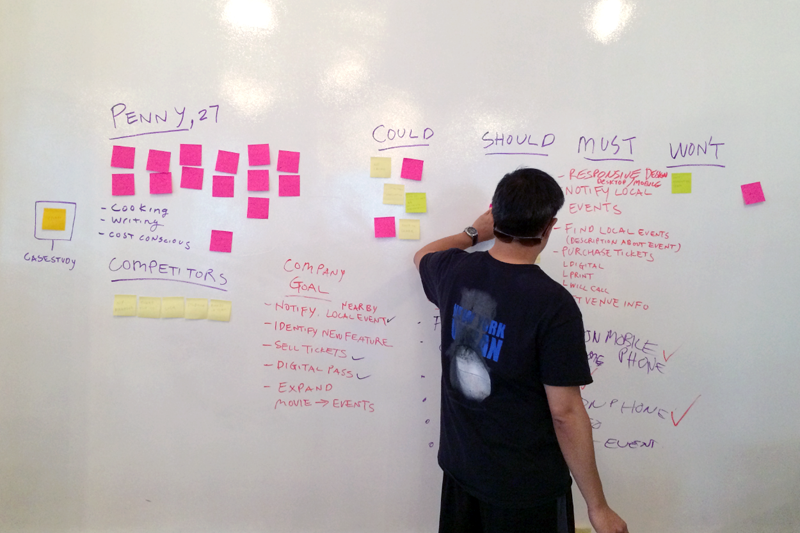 PENNY, 27
- COOKING
- WRITING
- COST CONSCIOUS
CASESTUDY
COMPETITORS
COMPANY
GOAL
- NOTIFY NEARBY
LOCAL EVENT ✓
- IDENTIFY NEW FEATURE
- SELL TICKETS ✓
- DIGITAL PASS ✓
- EXPAND
MOVIE → EVENTS
COULD
SHOULD
MUST
- RESPONSIVE DESIGN
DESKTOP/MOBILE
NOTIFY LOCAL
EVENTS
- FIND LOCAL EVENTS
(DESCRIPTION ABOUT EVENT)
- PURCHASE TICKETS
DIGITAL
PRINT
WILL CALL
VENUE INFO
MOBILE
PHONE ✓
ON PHONE ✓
EVENT
WON'T